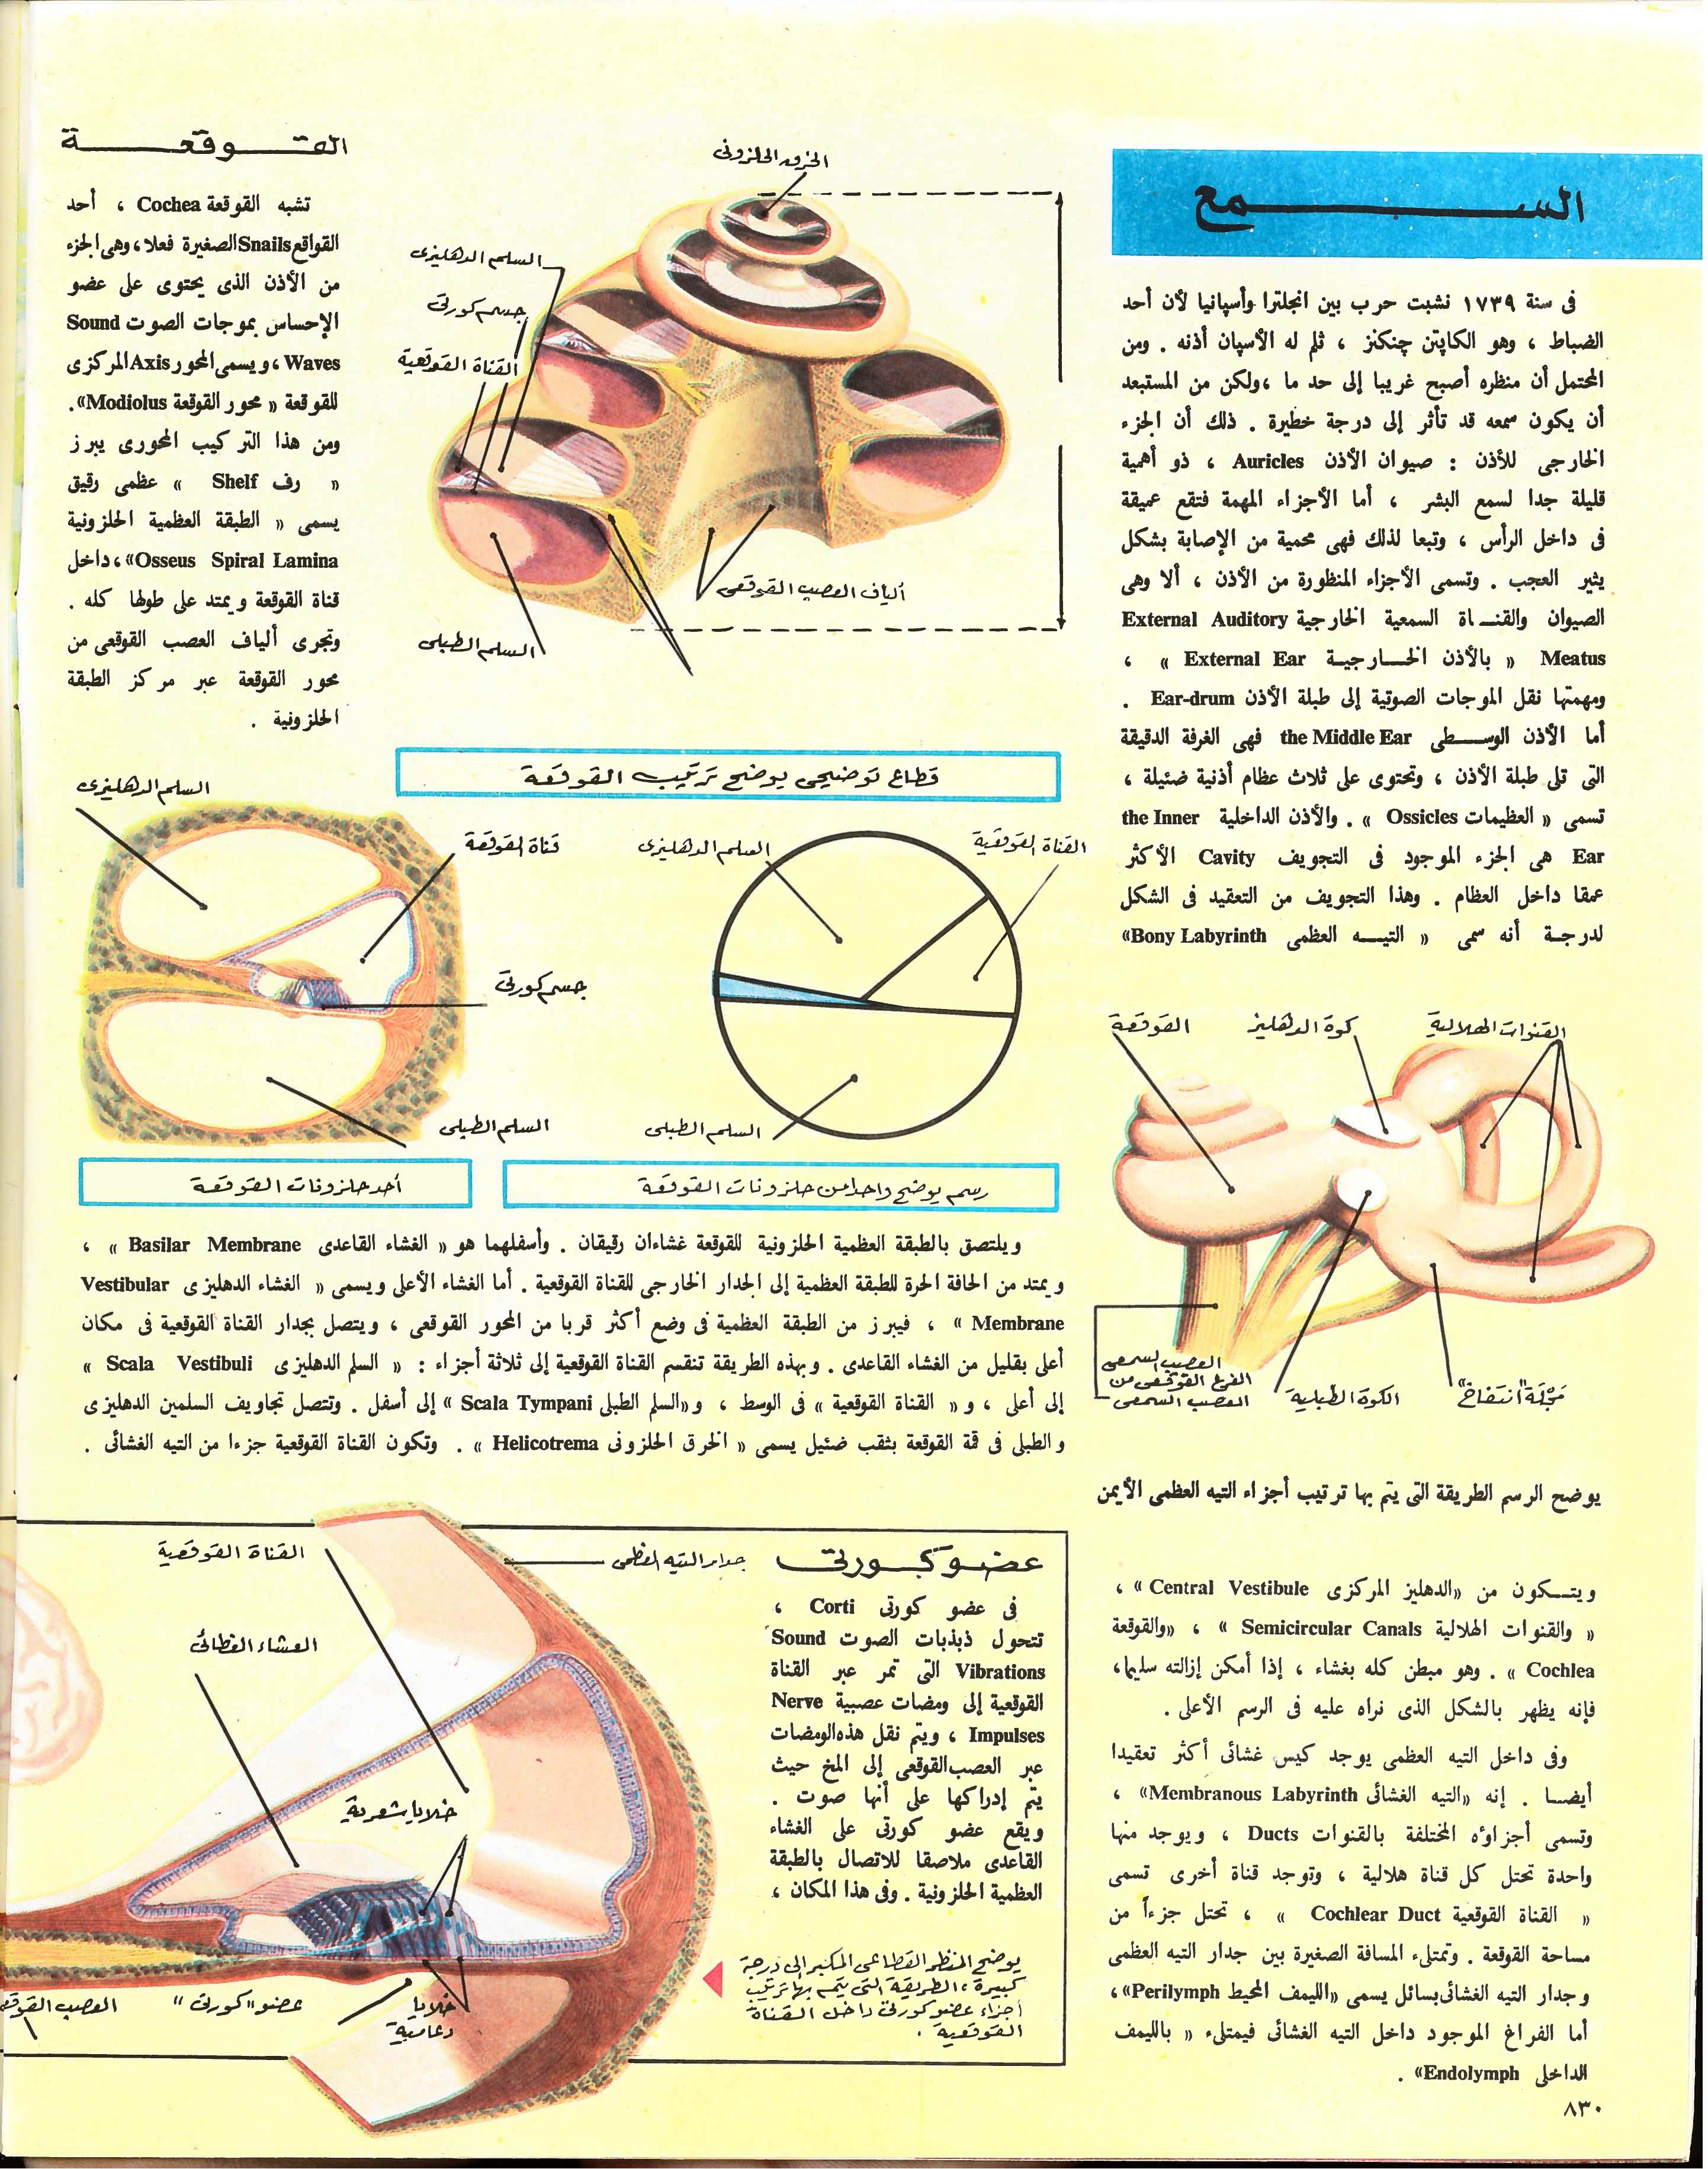 السمع
فى سنة ١٧٣٩ نشبت حرب بين انجلترا وأسپانيا لأن أحد
الضباط ، وهو الكاپتن چنكنز ، ثلم له الأسپان أذنه . ومن
المحتمل أن منظره أصبح غريبا إلى حد ما ،ولكن من المستبعد
أن يكون سمعه قد تأثر إلى درجة خطيرة . ذلك أن الجزء
الخارجى للأذن : صيوان الأذن Auricles ، ذو أهمية
قليلة جدا لسمع البشر ، أما الأجزاء المهمة فتقع عميقة
فى داخل الرأس ، وتبعا لذلك فهى محمية من الإصابة بشكل
يثير العجب . وتسمى الأجزاء المنظورة من الأذن ، ألا وهى
الصيوان والقناة السمعية الخارجية External Auditory
Meatus « بالأذن الخارجية External Ear » ،
ومهمتها نقل الموجات الصوتية إلى طبلة الأذن Ear-drum .
أما الأذن الوسطى the Middle Ear فهى الغرفة الدقيقة
التى تلى طبلة الأذن ، وتحتوى على ثلاث عظام أذنية ضئيلة ،
تسمى « العظيمات Ossicles » . والأذن الداخلية the Inner
Ear هى الجزء الموجود فى التجويف Cavity الأكثر
عمقا داخل العظام . وهذا التجويف من التعقيد فى الشكل
لدرجة أنه سمى « التيه العظمى Bony Labyrinth»
القنوات الهلالية
كوة الدهليز
القوقعة
العصب السمعى
الفرع القوقعى من
العصب السمعى
الكوة الطبلية
مَجْلَة "انتفاخ"
يوضح الرسم الطريقة التى يتم بها ترتيب أجزاء التيه العظمى الأيمن
ويتكون من «الدهليز المركزى Central Vestibule » ،
« والقنوات الهلالية Semicircular Canals » ، «والقوقعة
Cochlea » . وهو مبطن كله بغشاء ، إذا أمكن إزالته سليما،
فإنه يظهر بالشكل الذى نراه عليه فى الرسم الأعلى .
وفى داخل التيه العظمى يوجد كيس غشائى أكثر تعقيدا
أيضا . إنه «التيه الغشائى Membranous Labyrinth» ،
وتسمى أجزاؤه المختلفة بالقنوات Ducts ، ويوجد منها
واحدة تحتل كل قناة هلالية ، وتوجد قناة أخرى تسمى
« القناة القوقعية Cochlear Duct » ، تحتل جزءاً من
مساحة القوقعة . وتمتلىء المسافة الصغيرة بين جدار التيه العظمى
وجدار التيه الغشائى بسائل يسمى «الليمف المحيط Perilymph» ،
أما الفراغ الموجود داخل التيه الغشائى فيمتلىء « بالليمف
الداخلى Endolymph» .
٨٣٠
الخرق الحلزونى
السلم الدهليزى
جسم كورتى
القناة القوقعية
ألياف العصب القوقعى
السلم الطبلى
قطاع توضيحى يوضح ترتيب القوقعة
القوقعة
تشبه القوقعة Cochea ، أحد
القواقع Snails الصغيرة فعلا، وهى الجزء
من الأذن الذى يحتوى على عضو
الإحساس بموجات الصوت Sound
Waves ، ويسمى المحور Axis المركزى
للقوقعة « محور القوقعة Modiolus».
ومن هذا التركيب المحورى يبرز
« رف Shelf » عظمى رقيق
يسمى « الطبقة العظمية الحلزونية
Osseus Spiral Lamina» ، داخل
قناة القوقعة ويمتد على طولها كله .
وتجرى ألياف العصب القوقعى من
محور القوقعة عبر مركز الطبقة
الحلزونية .
السلم الدهليزى
قناة القوقعة
جسم كورتى
السلم الطبلى
أحد حلزونات القوقعة
القناة القوقعية
السلم الدهليزى
السلم الطبلى
رسم يوضح واحدا من حلزونات القوقعة
ويلتصق بالطبقة العظمية الحلزونية للقوقعة غشاءان رقيقان . وأسفلهما هو « الغشاء القاعدى Basilar Membrane » ،
ويمتد من الحافة الحرة للطبقة العظمية إلى الجدار الخارجى للقناة القوقعية . أما الغشاء الأعلى ويسمى « الغشاء الدهليزى Vestibular
Membrane » ، فيبرز من الطبقة العظمية فى وضع أكثر قربا من المحور القوقعى ، ويتصل بجدار القناة القوقعية فى مكان
أعلى بقليل من الغشاء القاعدى . وبهذه الطريقة تنقسم القناة القوقعية إلى ثلاثة أجزاء : « السلم الدهليزى Scala Vestibuli »
إلى أعلى ، و « القناة القوقعية » فى الوسط ، و«السلم الطبلى Scala Tympani » إلى أسفل . وتتصل تجاويف السلمين الدهليزى
والطبلى فى قمة القوقعة بثقب ضئيل يسمى « الخرق الحلزونى Helicotrema » . وتكون القناة القوقعية جزءا من التيه الغشائى .
عضو كورتى
فى عضو كورتى Corti ،
تتحول ذبذبات الصوت Sound
Vibrations التى تمر عبر القناة
القوقعية إلى ومضات عصبية Nerve
Impulses ، ويتم نقل هذه الومضات
عبر العصب القوقعى إلى المخ حيث
يتم إدراكها على أنها صوت .
ويقع عضو كورتى على الغشاء
القاعدى ملاصقا للاتصال بالطبقة
العظمية الحلزونية . وفى هذا المكان ،
يوضح المنظر القطاعى المكبر إلى درجة
كبيرة ، الطريقة التى يتم بها ترتيب
أجزاء عضو كورتى داخل القناة
القوقعية .
جدار التيه العظمى
القناة القوقعية
الغشاء الغطائى
خلايا شعرية
خلايا
دعامية
عضو "كورتى"
العصب